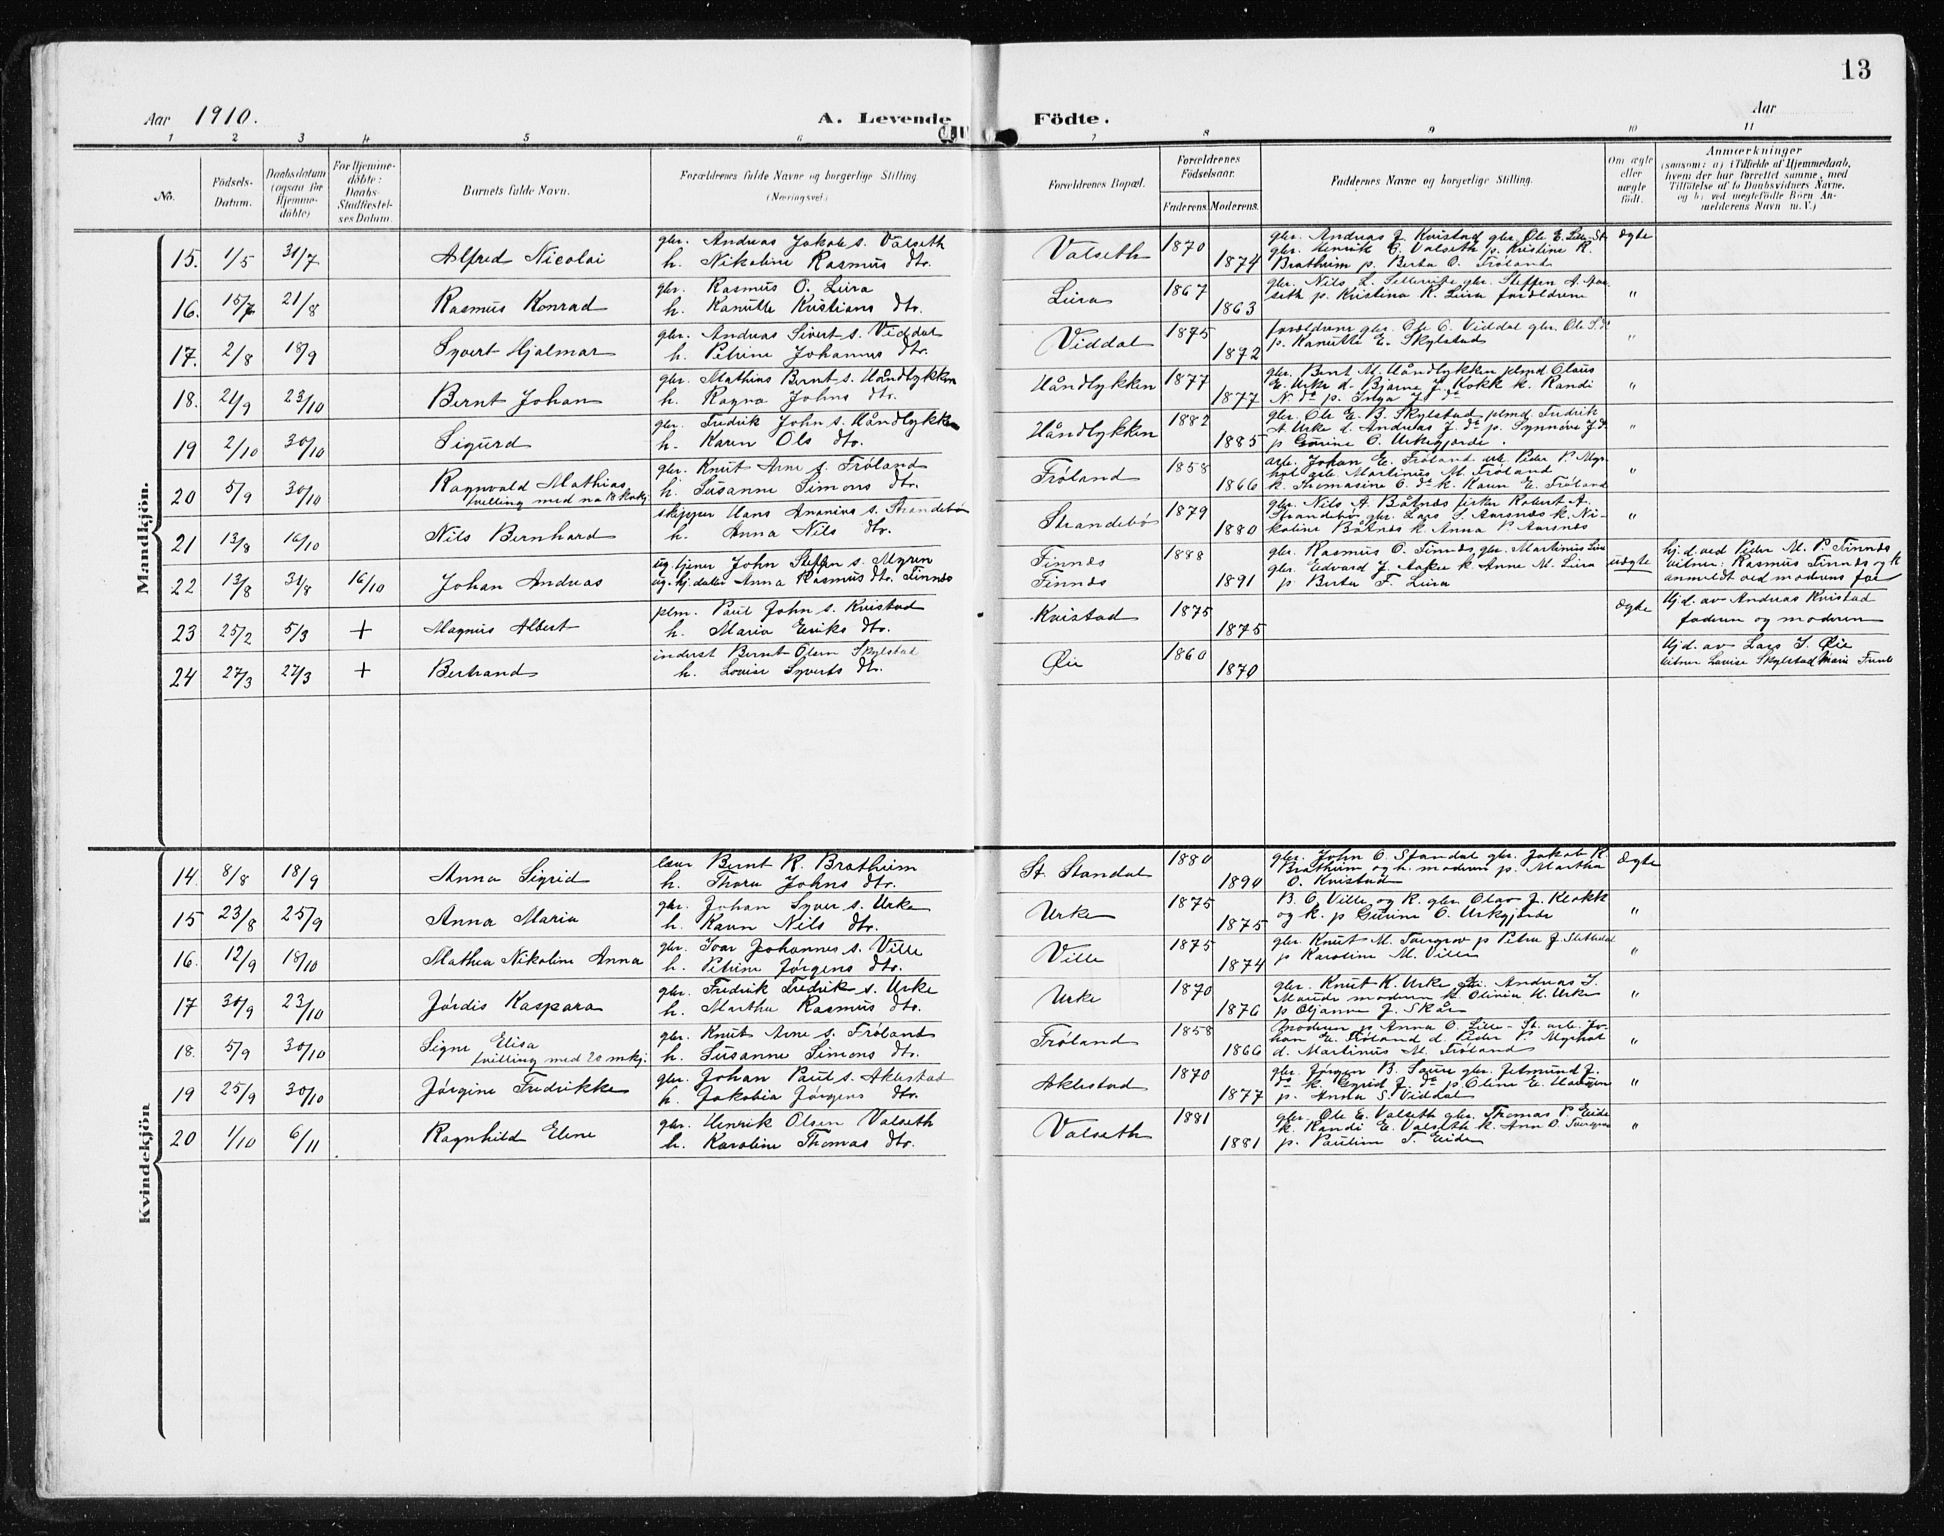 13
Aar 1910.
A. Levende
Födte.
Aar
1 2 3 4 5 6 7 8 9 10 11
No.
Födsels-Datum.
Daabsdatum (ogsaa for Hjemmedöbte)
For Hjemmedöbte: Daabs-Stadfæstelses Datum.
Barnets fulde Navn.
Forældrenes fulde Navne og borgerlige Stilling
(Næringsvei.)
Forældrenes Bopæl.
Forældrenes Födselsaar.
Faderens. Moderens.
Faddernes Navne og borgerlige Stilling.
Om ægte eller uægte födt.
Anmærkninger
(saasom: a) i Tilfælde af Hjemmedaab, hvem der har forrettet samme, med Tilföielse af to Daabsvidners Navne, og b) ved uegtefödte Börn Anmelderens Navn m. V.)
Mandkjön.
15. 1/5 31/7 Alfred Nicolai
gbr. Andreas Jakob s. Valseth
h. Nikoline Rasmus dtr.
Valseth 1870 1874
gbr. Andreas J. Kvistad gbr. Ole E. Lille-St.
gbr. Henrik O. Valseth p. Kristine R.
Bratheim p. Berta O. Tröland
ægte
16. 15/7 21/8 Rasmus Konrad
gbr. Rasmus O. Leira
h. Kanutte Kristians dtr.
Leira 1867 1863
gbr. Nils L. gbr. Steffen A.
seth p. Kristina R. Leira forældrene
"
17. 2/8 18/9 Syvert Hjalmar
gbr. Andreas Sivert s. Viddal
h. Petrine Johannes dtr.
Viddal 1875 1872
forældrene gbr. Ole O. Viddal gbr. Ole S. d°
p. Kanutte E. Skylstad
"
18. 21/9 23/10 Bernt Johan
gbr. Mathias Bernt s. Håndlykken
h. Ragna Johns dtr.
Håndlykken 1877 1877
gbr. Bent M. Håndlykken plmd Claus
E. Urke d. Bjarne J. Kokk k. Randi
N. d° p. Inga J. d°
"
19 2/10 30/10 Sigurd
gbr. Fredrik John s. Håndlykken
h. Karen Ols dtr.
Håndlykken 1882 1885
gbr. Ole E. B. Skylstad plmd. Fredrik
A. Urke d. Andreas J. d° p. Synnöve J. d°
p Gurine O. Urkegjerde.
"
20 5/9 30/10 Ragnvald Mathias
tvilling med no 18 kvkj.
gbr. Knut Arne s. Tröland
h. Susanne Simons dtr.
Tröland 1858 1866
arb. Johan E. Tröland arb. Peder P. Myr-
hol arb. Martinus M. Tröland
k. Thomasine O. d° k. Karen E. Tröland
"
21 13/8 16/10 Nils Bernhard
skipper Hans Ananias s. Strandebö
h. Anna Nils dtr.
Strandebö 1879 1880
gbr. Nils A. Båtnes fisker Robert A.
Strandebö gbr. Lars S. Aarsnes k. Ni-
koline Båtnes k Anna P. Aarsnes
"
22 13/8 31/8 16/10 Johan Andreas
ug. tjener John Steffen s. Myren
ug. hj. datr. Anna Rasmus dtr. Finnes
Finnes
Finnes
1888 1891
gbr. Rasmus O. Finnes, gbr. Martinus Leira
gbr. Edvard J. Aaker k. Anne M. Leira
p Berta F. Leira
uægte
hj. d. ved Peder M. P. Finnes
vitner: Rasmus Finnes og k
anmeldt ved moderens far
23 25/2 5/3 + Magnus Albert
plm. Paul John s. Kvistad
h. Maria Eriks dtr.
Kvistad 1875 1875
ægte
Hj. d. av Andreas Kvistad
faderen og moderen
24 27/3 27/3 + Bertrand
inderst Bernt Olsen Skylstad
h. Lovise Syverts dtr.
Øie 1860 1870
Hj. d. av Lars I. Øie
vitner Lovise Skylstad Marie
Kvindekjön
14. 8/8 18/9 Anna Sigrid
lærer Bernt R. Bratheim
h. Thora Johns dtr.
St. Standal 1880 1890
gbr. John O. Standal gbr. Jakob R.
Bratheim og h. moderen p. Martha
O. Kvistad
ægte
15 23/8 25/9 Anna Maria
gbr. Johan Syver s. Urke
h. Karen Nils dtr.
Urke 1875 1875
B. O. Ville og K. gbr. Olav J. Klokk
og k. p Gurine O. Urkegjerde
"
16. 12/9 18/10 Mathea Nikoline Anna
gbr. Ivar Johannes s. Ville
h. Petrine Jørgens dtr.
Ville 1875 1874
gbr. Knut M. Tvergrov p Petra J. Slettedal
p Karoline M. Ville
"
17 30/9 23/10 Jørdis Kaspara
gbr. Fredrik Fredrik s. Urke
h. Martha Rasmus dtr.
Urke 1870 1876
gbr. Knut K. Urke gbr. Andreas I.
Maude moderen k. Olivia H. Urke
p Oljanna J. Skår
"
18. 5/9 30/10 Signe Elisa
tvilling med 20 mkj.
gbr. Knut Arne s. Tröland
h. Susanne Simons dtr.
Tröland 1858 1866
Moderen p. Anna O. Lille-St. arb. Jo-
han E. Tröland d. Peder P. Myrhol
d. Martinus M. Tröland
"
19 25/9 30/10 Jørgine Fredrikke
gbr. Johan Paul s. Aklestad
h. Jakobia Jørgens dtr.
Aklestad 1870 1877
gbr. Jørgen B. Saure gbr. Jetmund J.
d° k. Sigrid J. d° p. Oline E.
p. Anna S. Viddal
"
20 1/10 6/11 Ragnhild Elene
gbr. Henrik Olsen Valseth
h. Karoline Thomas dtr.
Valseth 1881 1881
gbr. Ole E. Valseth gbr. Thomas P. Eide
k. Randi E. Valseth k. Ann O. Tvergrov
p. Pauline T. Eide
"